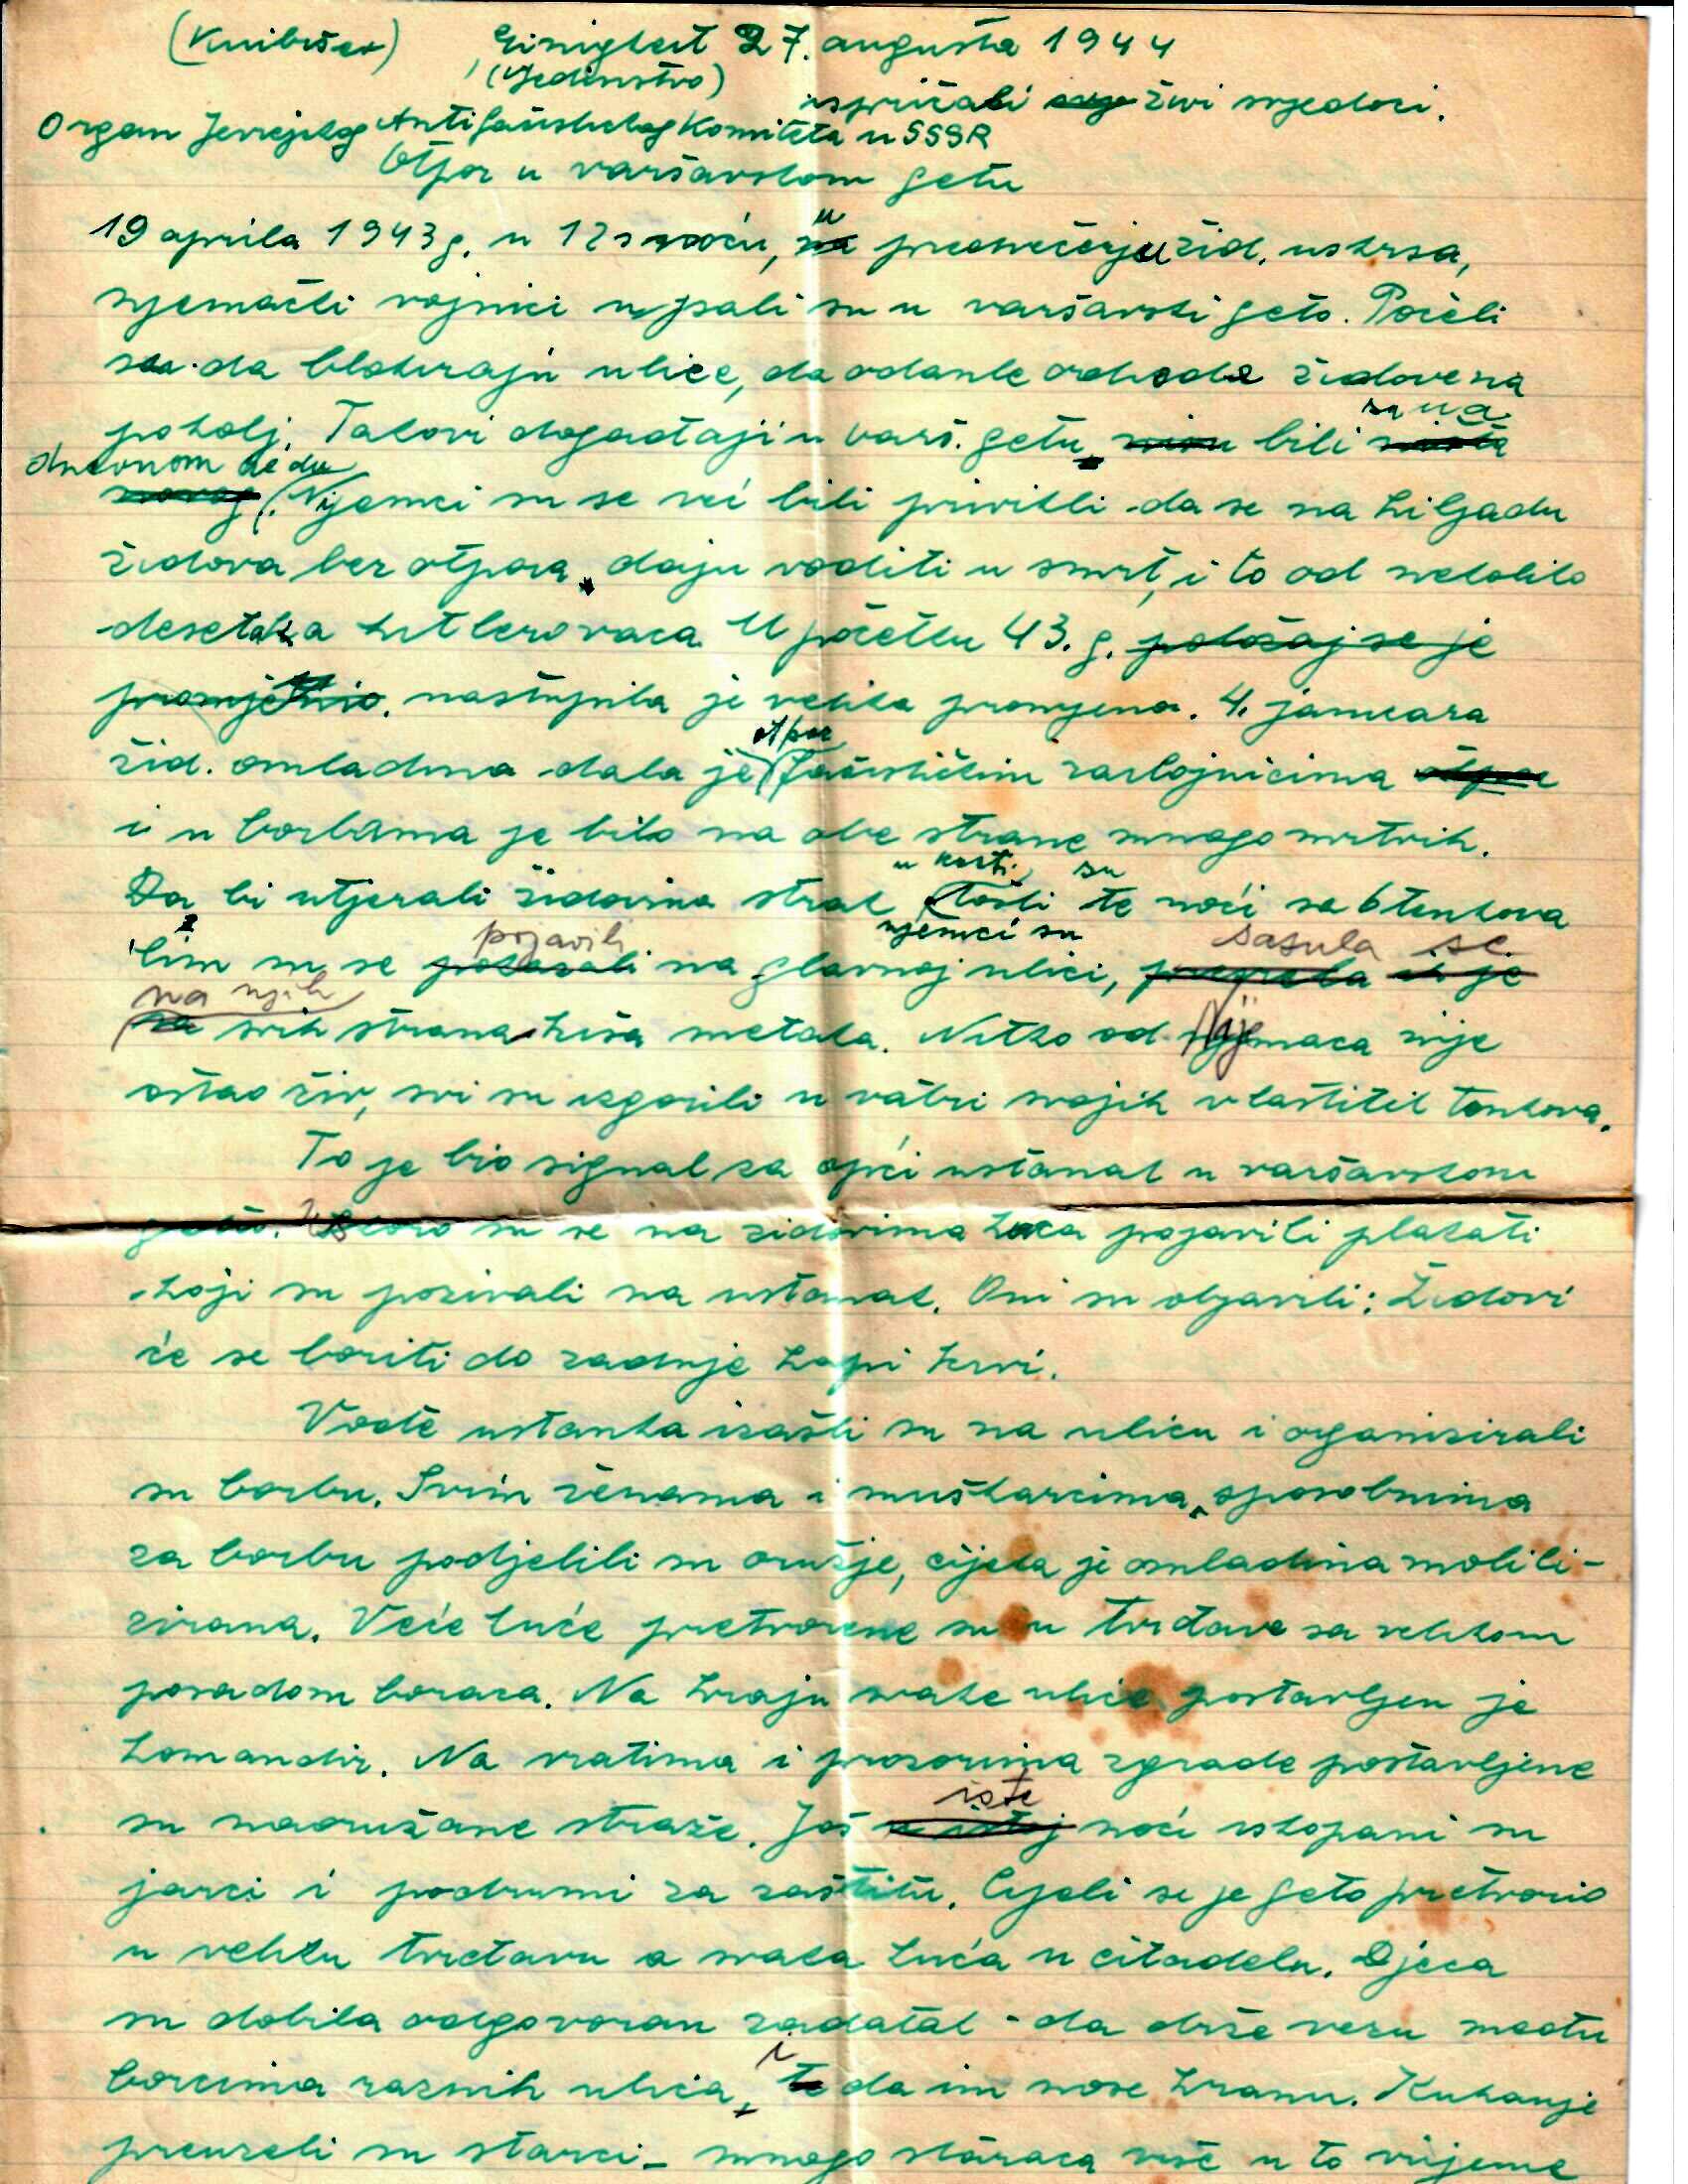 (Kuibišev) Einigkeit 27. augusta 1944
(Jedinstvo)
ispričali živi svjedoci.
Organ Jevrejskog Antifašističkog Komiteta u SSSR
Otpor u varšavskom getu
19 aprila 1943 g. u 12 s noću, u predvečerju žid. uskrsa,
njemački vojnici upali su u varšavski geto. Počeli
su da blokiraju ulice, da odanle odvode židove na
pokolj. Takovi događaji u varš. getu bili su na
dnevnom redu. Nijemci su se već bili privikli da se na hiljadu
židova bez otpora daju voditi u smrt, i to od nekoliko
desetaka hitlerovaca. U početku 43. g. položaj se je
promjenio. nastupila je velika promjena. 4. januara
žid. omladina dala je otpor fašističkim razbojnicima otpor
i u borbama je bilo na obe strane mnogo mrtvih.
Da bi utjerali židovima strah u kosti, došli su te noći sa 6 tenkova
Čim su se pokazali pojavili njemci su na glavnoj ulici, sasula se
na njih sa svih strana kiša metaka. Nitko od Nijemaca nije
ostao živ, svi su izgorili u vatri svojih vlastitih tenkova.
To je bio signal za opći ustanak u varšavskom
getu. Uskoro su se na zidovima kuća pojavili plakati
koji su pozivali na ustanak. Oni su objavili: Židovi
će se boriti do zadnje kapi krvi.
Vođe ustanka izašli su na ulicu i organizirali
su borbu. Svim ženama i muškarcima, sposobnima
za borbu podjelili su oružje, cijela je omladina mobili-
zirana. Veće kuće pretvorene su u tvrđave sa velikom
posadom boraca. Na kraju svake ulice postavljen je
komandir. Na vratima i prozorima zgrade postavljene
su naoružane straže. Još iste u istoj noći iskopani su
jarci i podrumi za zaštitu. Cijeli se je geto pretvorio
u veliku tvrđavu a svaka kuća u citadelu. Djeca
su dobila odgovoran zadatak - da drže vezu među
borcima raznih ulica, i te da im nose hranu. Kuhanje
preuzeli su starci - mnogo staraca već u to vrijeme